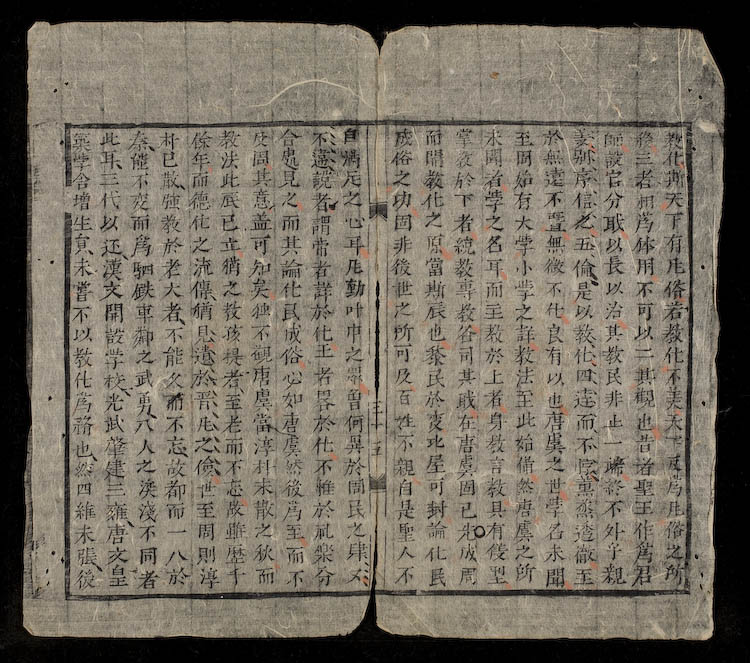 教化斯天下有凡俗若教化不美天下反爲凡俗之所
移三者相爲体用不可以二其觀也昔者聖王作爲君
師設官分职以長以治其教民非止一端終不外乎親
義別序信之五倫是以教化四達而不悖薫蒸透徹至
於無遠不曁無微不化良有以也唐虞之世学名未聞
至周始有大斈小斈之詳教法至此始備然唐虞之所
未聞者斈之名耳而至教於上者身教言教具有後聖
掌教於下者統教專教各司其职在唐虞固已先成周
而開教化之原當斯辰也黎民於変比屋可封論化民
成俗之功固非後世之所可及百姓不親自是聖人不
自滿足之心耳凡動叶中之曾何異於周民之肆不
不違說者謂昔者詳於化王者畧於化不惟於礼楽分
合處見之而其論化民成俗必如唐虞然後爲至而不
及周其意盖可知矣独不觀唐虞當淳朴未散之秋而
教法此辰已立猶之教孩提者至老而不忘故雖歴千
餘年而德化之流傳猶見遺於晋凡之儉世至周則淳
朴已散強教於老大者不能久而不忘故都而一入於
秦能不変而爲駟鉄車鄰之武勇入人之深淺不同者
此耳三代以还漢文開設学校光武肇建三雍唐文皇
學舍增生員未嘗不以教化爲務也然四維未張後